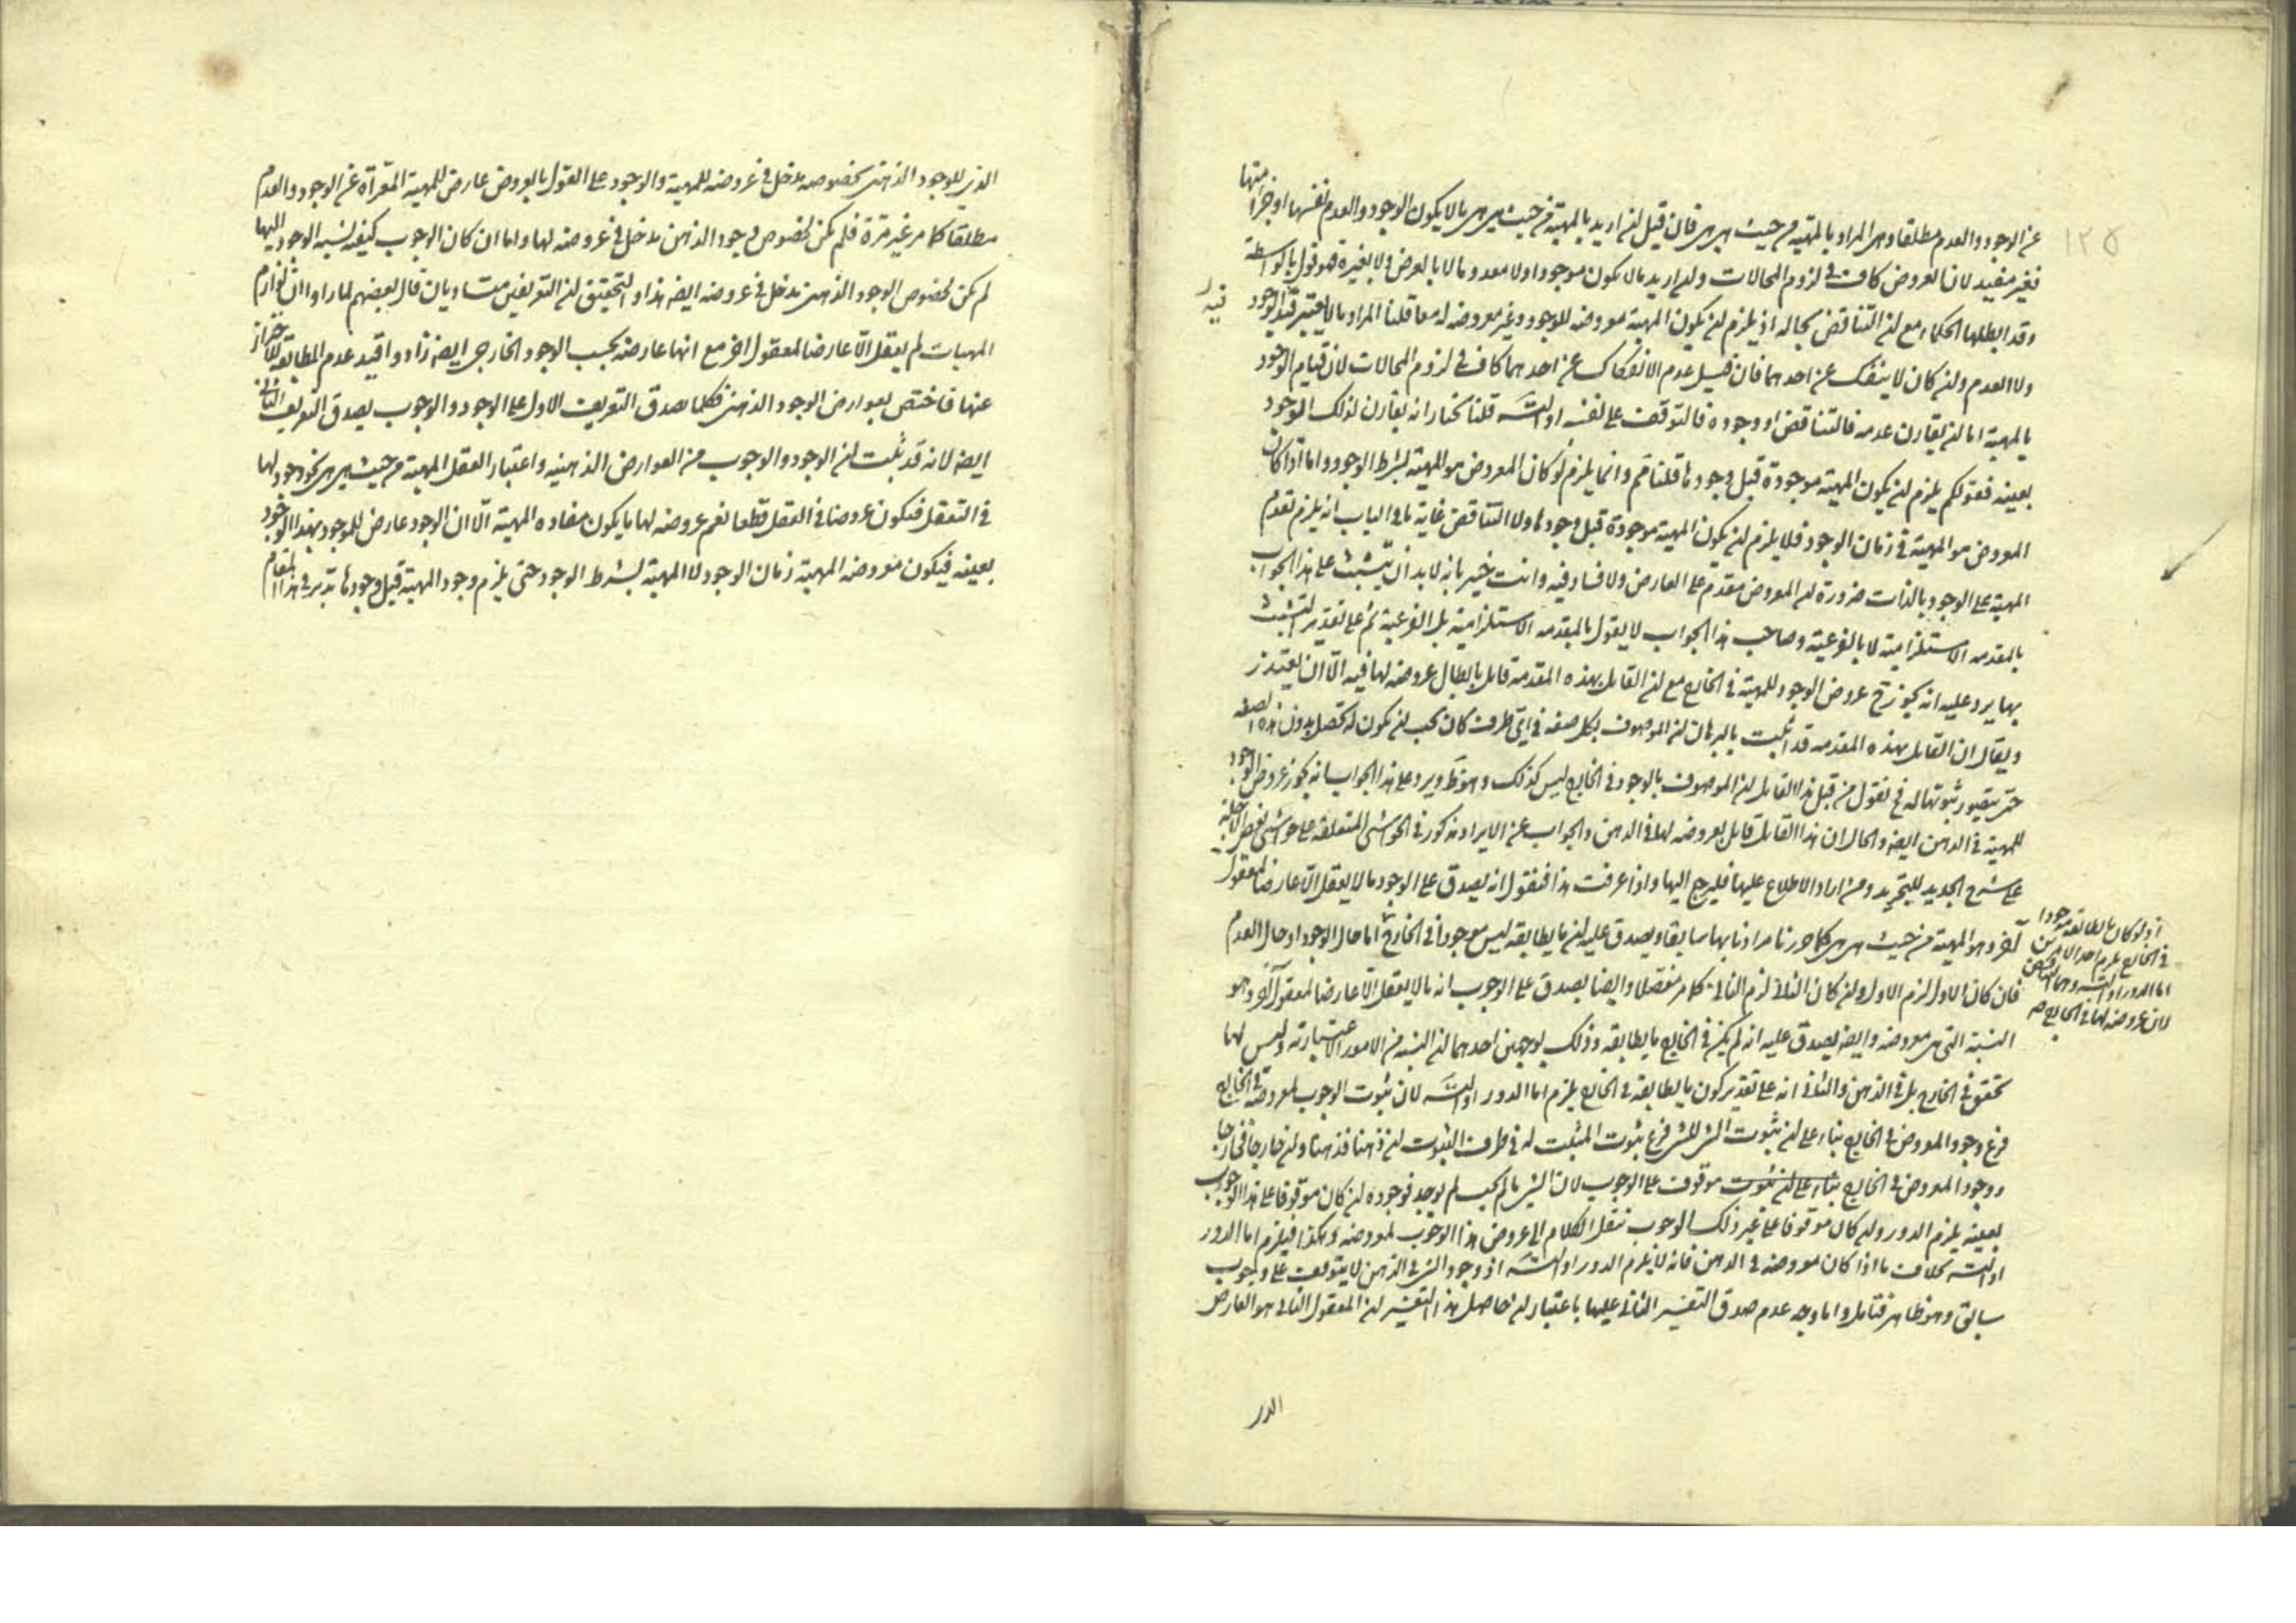 ١٢٥
عن الوجود والعدم مطلقا وهى المراد بالمهية من حيث هى هى فان قيل ان اريد بالمهية من حيث هى هى ما لا يكون الوجود والعدم نفسها او جزأ منها
فغير مفيد لان العروض كاف فى لزوم المحالات وان اريد ما لا يكون موجودا ولا معدوما لا بالعرض ولا بغيره فهو قول بالواسطة
وقد ابطلها الحكماء مع ان التناقض بحاله اذ يلزم ان يكون المهية معروضه للوجود وغير معروضه له معا قلنا المراد ما لا يعتبر فيه الوجود
ولا العدم وان كان لا ينفك عن احدهما فان قيل عدم الانفكاك عن احدهما كاف فى لزوم المحالات لان قيام الوجود
بالمهية اما ان يقارن عدمه فالتناقض او وجوده فالتوقف على نفسه او التسـ قلنا نختار انه يقارن لذلك الوجود
بعينه فقولكم يلزم ان يكون المهية موجودة قبل وجودها قلنا مم وانما يلزم لو كان المعروض هو المهية بشرط الوجود واما اذا كان
المعروض هو المهية فى زمان الوجود فلا يلزم ان يكون المهية موجودة قبل وجودها ولا التناقض غاية ما فى الباب انه يلزم تقدم
المهية على الوجود بالذات ضرورة ان المعروض مقدم على العارض ولا فساد فيه وانت خبير بانه لا بد ان يتشبث على هذا الجواب
بالمقدمه الاستلزامية لا بالفرعية وصاحب هذا الجواب لا يقول بالمقدمه الاستلزامية بل الفرعية ثم على تقدير التشبث
بها يرد عليه انه يجوز ح عروض الوجود للمهية فى الخارج مع ان القايل بهذه المقدمه قايل بابطال عروضه لها فيه الا ان يعتذر
ويقال ان القايل بهذه المقدمه قد اثبت بالبرهان ان الموصوف بكل صفه فى اى ظرف كان يجب ان يكون له تحصل بدون هذه الصفه
حتى يتصور ثبوتها له فح نقول من قبل هذا القايل ان الموصوف بالوجود فى الخارج ليس كذلك وهو ظ ويرد على هذا الجواب انه يجوز عروض الوجود
للمهية فى الذهن ايضه والحال ان هذا القايل قايل بعروضه لها فى الذهن والجواب عن الايراد مذكور فى الحواشى المتعلقه على حواشى بعض الاجله
على شرح الجديد للتجريد ومن اراد الاطلاع عليها فليرجع اليها واذا عرفت هذا فنقول انه يصدق على الوجود ما لا يعقل الا عارضا لمعقول
آخر وهو المهية من حيث هى هى كما حررنا مرادنا بها سابقا ويصدق عليه ان ما يطابقه ليس موجودا فى الخارج اما حال الوجود او حال العدم
اذ لو كان ما يطابقه موجودا
فى الخارج يلزم احد الامرين
اما الدور او التسـ وهما
لان عروضه لها فى الخارج صـ
فان كان الاول لزم الاول وان كان الثانى لزم الثانى كما مر مفصلا وايضا يصدق على الوجوب انه ما لا يعقل الا عارضا لمعقول آخر وهو
النسبة التى هى معروضه وايضه يصدق عليه انه لم يكن فى الخارج ما يطابقه وذلك بوجهين احدهما ان النسبه من الامور الاعتباريه وليس لها
تحقق فى الخارج بل فى الذهن والثانى انه على تقدير كون ما يطابقه فى الخارج يلزم اما الدور او التسـ لان ثبوت الوجوب لمعروضه فى الخارج
فرع وجود المعروض فى الخارج بناء على ان ثبوت الشئ للشئ فرع ثبوت المثبت له فى ظرف الثبوت ان ذهنا فذهنا وان خارجا فخارجا
ووجود المعروض فى الخارج بناء على ان ثبوت موقوف على الوجوب لان الشئ ما لم يجب لم يوجد فوجوده ان كان موقوفا على هذا الوجوب
بعينه يلزم الدور وان كان موقوفا على غير ذلك الوجوب ننقل الكلام الى عروض هذا الوجوب لمعروضه وهكذا فيلزم اما الدور
او التسـ بخلاف ما اذا كان معروضه فى الذهن فانه لا يلزم الدور او التسـ اذ وجود الشئ فى الذهن لا يتوقف على وجوب
سابق وهو ظاهر فتامل واما وجه عدم صدق التفسير الثانى عليها باعتبار ان حاصل هذا التفسير ان المعقول الثانى هو العارض
الذى
الذى للوجود الذهنى بخصوصه مدخل فى عروضه للمهية والوجود على القول بالعروض عارض للمهية المعرّاة عن الوجود والعدم
مطلقا كما مر غير مرة فلم يكن لخصوص وجود الذهن مدخل فى عروضه لها واما ان كان الوجوب كيفيه لنسبه الوجود اليها
لم يكن لخصوص الوجود الذهنى مدخل فى عروضه ايضه هذا والتحقيق ان التعريفين متساويان قال بعضهم لما راوا ان لوازم
المهيات لم يعقل الا عارضا لمعقول اخر مع انها عارضه بحسب الوجود الخارجى ايضه زادوا قيد عدم المطابقه للاحتراز
عنها فاختص بعوارض الوجود الذهنى فكلما صدق التعريف الاول على الوجود والوجوب يصدق التعريف الثانى
ايضه لانه قد ثبت ان الوجود والوجوب من العوارض الذهنيه واعتبار العقل المهية من حيث هى هى نحو وجود لها
فى التعقل فيكون عروضها فى العقل قطعا نعم عروضه لها ما يكون مفاده المهية الا ان الوجود عارض للموجود بهذا الوجود
بعينه فيكون معروضه المهية زمان الوجود لا المهية بشرط الوجود حتى يلزم وجود المهية قبل وجودها تدبر فى هذا المقام